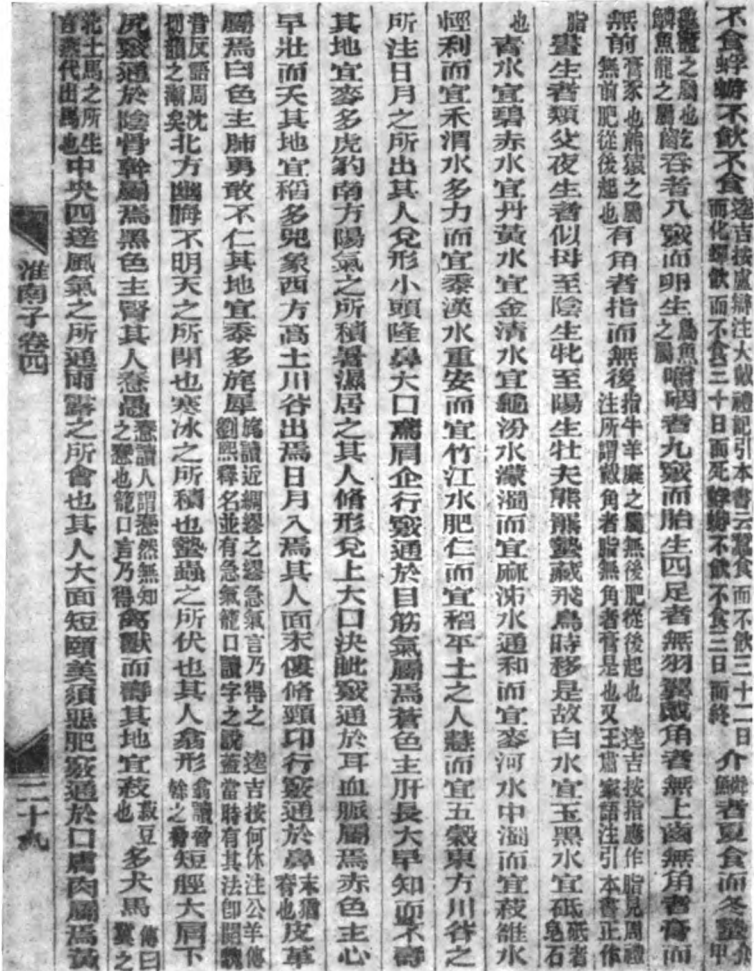 不食蜉蝣不飲不食逵吉按盧辯注大戴禮記引本書云蠶食而不飲三十二日而化蟬飲而不食三十日而死蜉蝣不飲不食三日而終介鱗者夏食而冬蟄介甲
龜鼈之屬也鱗魚龍之屬齕吞者八竅而卵生鳥魚之屬嚼咽者九竅而胎生四足者無羽翼戴角者無上齒無角者膏而
無前膏豕也熊猿之屬無前肥從後起也有角者指而無後指牛羊麋之屬無後肥從後起也 逵吉按指應作脂見周禮注所謂戴角者脂無角者膏是也又王肅家語注引本書正作
脂晝生者類父夜生者似母至陰生牝至陽生牡夫熊羆蟄藏飛鳥時移是故白水宜玉黑水宜砥砥者皂石
也青水宜碧赤水宜丹黃水宜金清水宜龜汾水濛濁而宜麻泲水通和而宜麥河水中濁而宜菽雒水
輕利而宜禾渭水多力而宜黍漢水重安而宜竹江水肥仁而宜稻平土之人慧而宜五穀東方川谷之
所注日月之所出其人兌形小頭隆鼻大口鳶肩企行竅通於目筋氣屬焉蒼色主肝長大早知而不壽
其地宜麥多虎豹南方陽氣之所積暑濕居之其人脩形兌上大口決眦竅通於耳血脈屬焉赤色主心
早壯而夭其地宜稻多兕象西方高土川谷出焉日月入焉其人面末僂脩頸卬行竅通於鼻末猶脊也皮革
屬焉白色主肺勇敢不仁其地宜黍多旄犀旄讀近綢繆之繆急氣言乃得之 逵吉按何休注公羊傳劉熙釋名並有急氣籠口讀字之說蓋當時有其法即開魏
晉反語周沈切韻之漸矣北方幽晦不明天之所閉也寒冰之所積也蟄蟲之所伏也其人翕形翕讀脅榦之脅短脛大肩下
尻竅通於陰骨幹屬焉黑色主腎其人惷愚惷讀人謂惷然無知之惷也籠口言乃得禽獸而壽其地宜菽菽豆也多犬馬傳曰冀之
北土馬之所生言燕代出馬也中央四達風氣之所通雨露之所會也其人大面短頤美須惡肥竅通於口膚肉屬焉黃
淮南子卷四
二十九